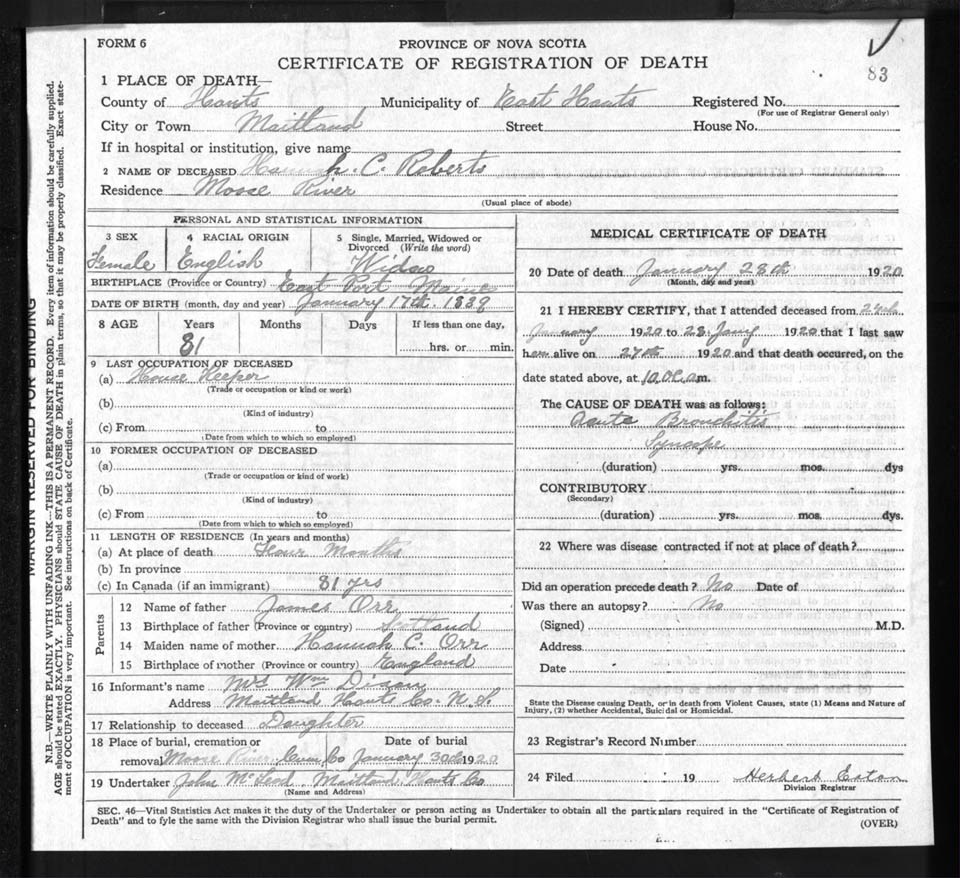 FORM 6
PROVINCE OF NOVA SCOTIA
CERTIFICATE OF REGISTRATION OF DEATH
83
1 PLACE OF DEATH—
County of Hants Municipality of East Hants Registered No.
(For use of Registrar General only)
City or Town Maitland Street House No.
If in hospital or institution, give name
2 NAME OF DECEASED Hannah. C. Roberts
Residence Moose River
(Usual place of abode)
PERSONAL AND STATISTICAL INFORMATION
3 SEX
Female
4 RACIAL ORIGIN
English
5 Single, Married, Widowed or
Divorced (Write the word)
Widow
BIRTHPLACE (Province or Country) East Port Maine
DATE OF BIRTH (month, day and year) January 17th. 1839
8 AGE Years Months Days If less than one day,
81 hrs. or min.
9 LAST OCCUPATION OF DECEASED
(a) House Keeper
(Trade or occupation or kind or work)
(b)
(Kind of industry)
(c) From to
(Date from which to which so employed)
10 FORMER OCCUPATION OF DECEASED
(a)
(Trade or occupation or kind of work)
(b)
(Kind of industry)
(c) From to
(Date from which to which so employed)
11 LENGTH OF RESIDENCE (In years and months)
(a) At place of death Four Months
(b) In province
(c) In Canada (if an immigrant) 81 yrs
Parents
12 Name of father James Orr
13 Birthplace of father (Province or country) Scotland
14 Maiden name of mother Hannah C. Orr
15 Birthplace of mother (Province or country) England
16 Informant's name Mrs Wm Dixon
Address Maitland Hants Co. N. S.
17 Relationship to deceased Daughter
18 Place of burial, cremation or Date of burial
removal Moose River Co January 30th 1920
19 Undertaker John McLeod Maitland Hants Co
(Name and Address)
MEDICAL CERTIFICATE OF DEATH
20 Date of death January 28th 1920
(Month, day and year)
21 I HEREBY CERTIFY, that I attended deceased from
January 1920 to 28 Jany 1920 that I last saw
her alive on 27th 1920 and that death occurred, on the
date stated above, at 10.a.m.
The CAUSE OF DEATH was as follows:
Acute Bronchitis
Syncope
(duration) yrs. mos. dys
CONTRIBUTORY
(Secondary)
(duration) yrs. mos. dys.
22 Where was disease contracted if not at place of death?
Did an operation precede death? No Date of
Was there an autopsy? No
(Signed) M.D.
Address
Date
State the Disease causing Death, or in death from Violent Causes, state (1) Means and Nature of
Injury, (2) whether Accidental, Suicidal or Homicidal.
23 Registrar's Record Number
24 Filed 19 Herbert Eaton
Division Registrar
SEC. 46—Vital Statistics Act makes it the duty of the Undertaker or person acting as Undertaker to obtain all the particulars required in the "Certificate of Registration of
Death" and to fyle the same with the Division Registrar who shall issue the burial permit.
(OVER)
MARGIN RESERVED FOR BINDING
N.B.—WRITE PLAINLY WITH UNFADING INK—THIS IS A PERMANENT RECORD. Every item of information should be carefully supplied.
AGE should be stated EXACTLY. PHYSICIANS should STATE CAUSE OF DEATH in plain terms, so that it may be properly classified. Exact state-
ment of OCCUPATION is very important. See instructions on back of Certificate.